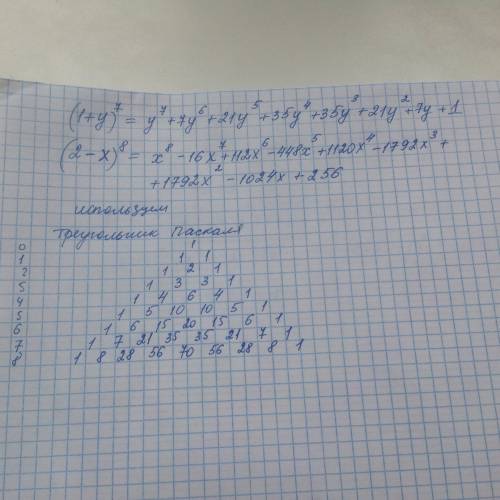 (1+y)⁷ = y⁷+7y⁶+21y⁵+35y⁴+35y³+21y²+7y+1
(2-x)⁸= x⁸-16x⁷+112x⁶-448x⁵+1120x⁴-1792x³+
+1792x²-1024x+256
используем
треугольник Паскаля
0 1
1 1 1
2 1 2 1
5 1 3 3 1
4 1 4 6 4 1
5 1 5 10 10 5 1
6 1 6 15 20 15 6 1
7 1 7 21 35 35 21 7 1
8 1 8 28 56 70 56 28 8 1